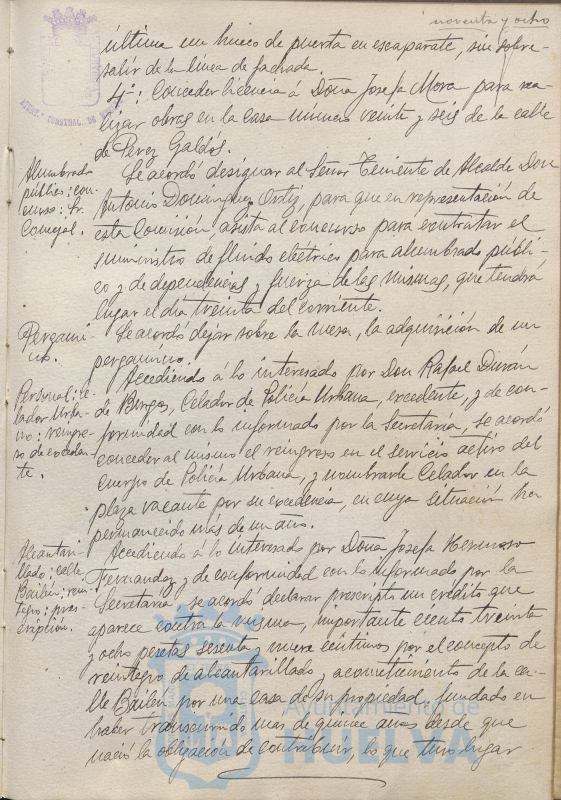 noventa y ocho
última un hueco de puerta en escaparate, sin sobre-
salir de la línea de fachada.
4º: Conceder licencia á Doña Josefa Mora para rea-
lizar obras en la casa número veinte y seis de la calle
de Perez Galdós.
Alumbrado
público: con-
curso: Sr.
Concejal.
Se acordó designar al Señor Teniente de Alcalde Don
Antonio Dominguez Ortiz, para que en representación de
esta Comisión, asista al concurso para contratar el
suministro de fluido eléctrico para alumbrado públi-
co y de dependencias y fuerza de las mismas, que tendrá
lugar el día treinta del corriente.
Pergami-
no.
Se acordó dejar sobre la mesa, la adquisición de un
pergamino.
Personal: Ce-
lador Urba-
no: reingre-
so de exceden-
te.
Accediendo á lo interesado por Don Rafael Durán
de Burgos, Celador de Policía Urbana, excedente, y de con-
formidad con lo informado por la Secretaría, se acordó
conceder al mismo el reingreso en el servicio activo del
cuerpo de Policía Urbana, y nombrarle Celador en la
plaza vacante por su excedencia, en cuya situación ha
permanecido más de un año.
Alcantari-
llado: calle
Bailén: rein-
tegro: pres-
cripción.
Accediendo á lo interesado por Doña Josefa Hermoso
Fernandez y de conformidad con lo informado por la
Secretaría, se acordó declarar prescripto un crédito que
aparece contra la misma, importante ciento treinta
y ocho pesetas sesenta y nueve céntimos por el concepto de
reintegro de alcantarillado y acometimiento de la ca-
lle Bailén por una casa de su propiedad, fundado en
haber transcurrido más de quince años desde que
nació la obligación de contribuir, lo que tuvo lugar
Ayuntamiento de
HUELVA